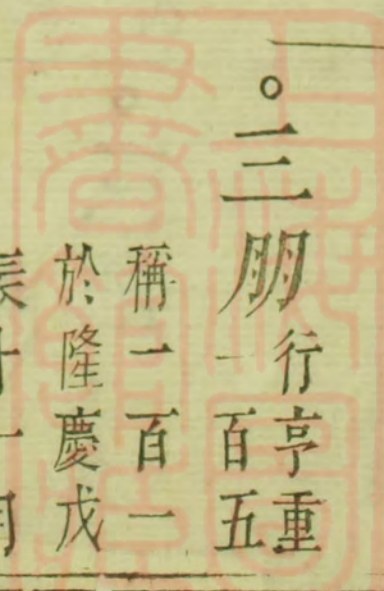 ○三朋
行亨重
一百五
稱一百一
於隆慶戊